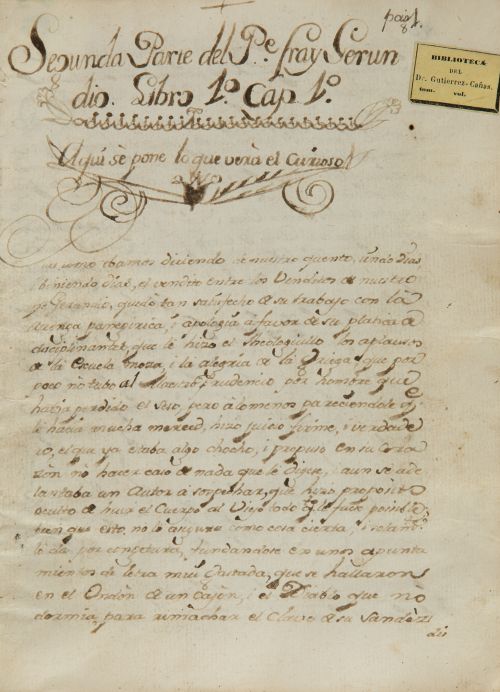 pag 1.
Segunda Parte del P.e fray Gerun
dio. Libro 1.o Cap. 1.o
BIBLIOTECA
DEL
Dr. Gutierrez-Cañas.
tom. vol.
Aqui sè pone lo que verà el Curioso
como ibamos diciendo de nuestro quento, iendo dias
i beniendo dias, el vendito entre los Venditos de nuestro
Gerundio, quedò tan satisfecho de su trabajo con la
arenga panegirica, i apologia a favor de su platica de
disciplinantes, que le hizo el los aplausos
de la Escuela moza, i la alegria de la que por
poco no tubo al Maestro Prudencio por hombre que
havia perdido el seso, pero a lo menos pareciendole q.e
le hacia mucha merced, hizo juicio firme, i verdade
ro, el que ya estaba algo chocho, i propuso en su Cora
zòn no hacer caso de nada que le dijese, i aun se ade
lantaba un Autor à sospechar, que hizo proposito
oculto de huir el Cuerpo al Viejo todo lo q.e fuese posible,
bien que esto, no lo asegura como cosa cierta, i solam.te
lo da por conjetura, fundandose en unos apunta
mientos de letra mui gastada, que se hallaron
en el de un Cajon, i el Diablo que no
dormia, para rimachar el Clavo de su Sandèz